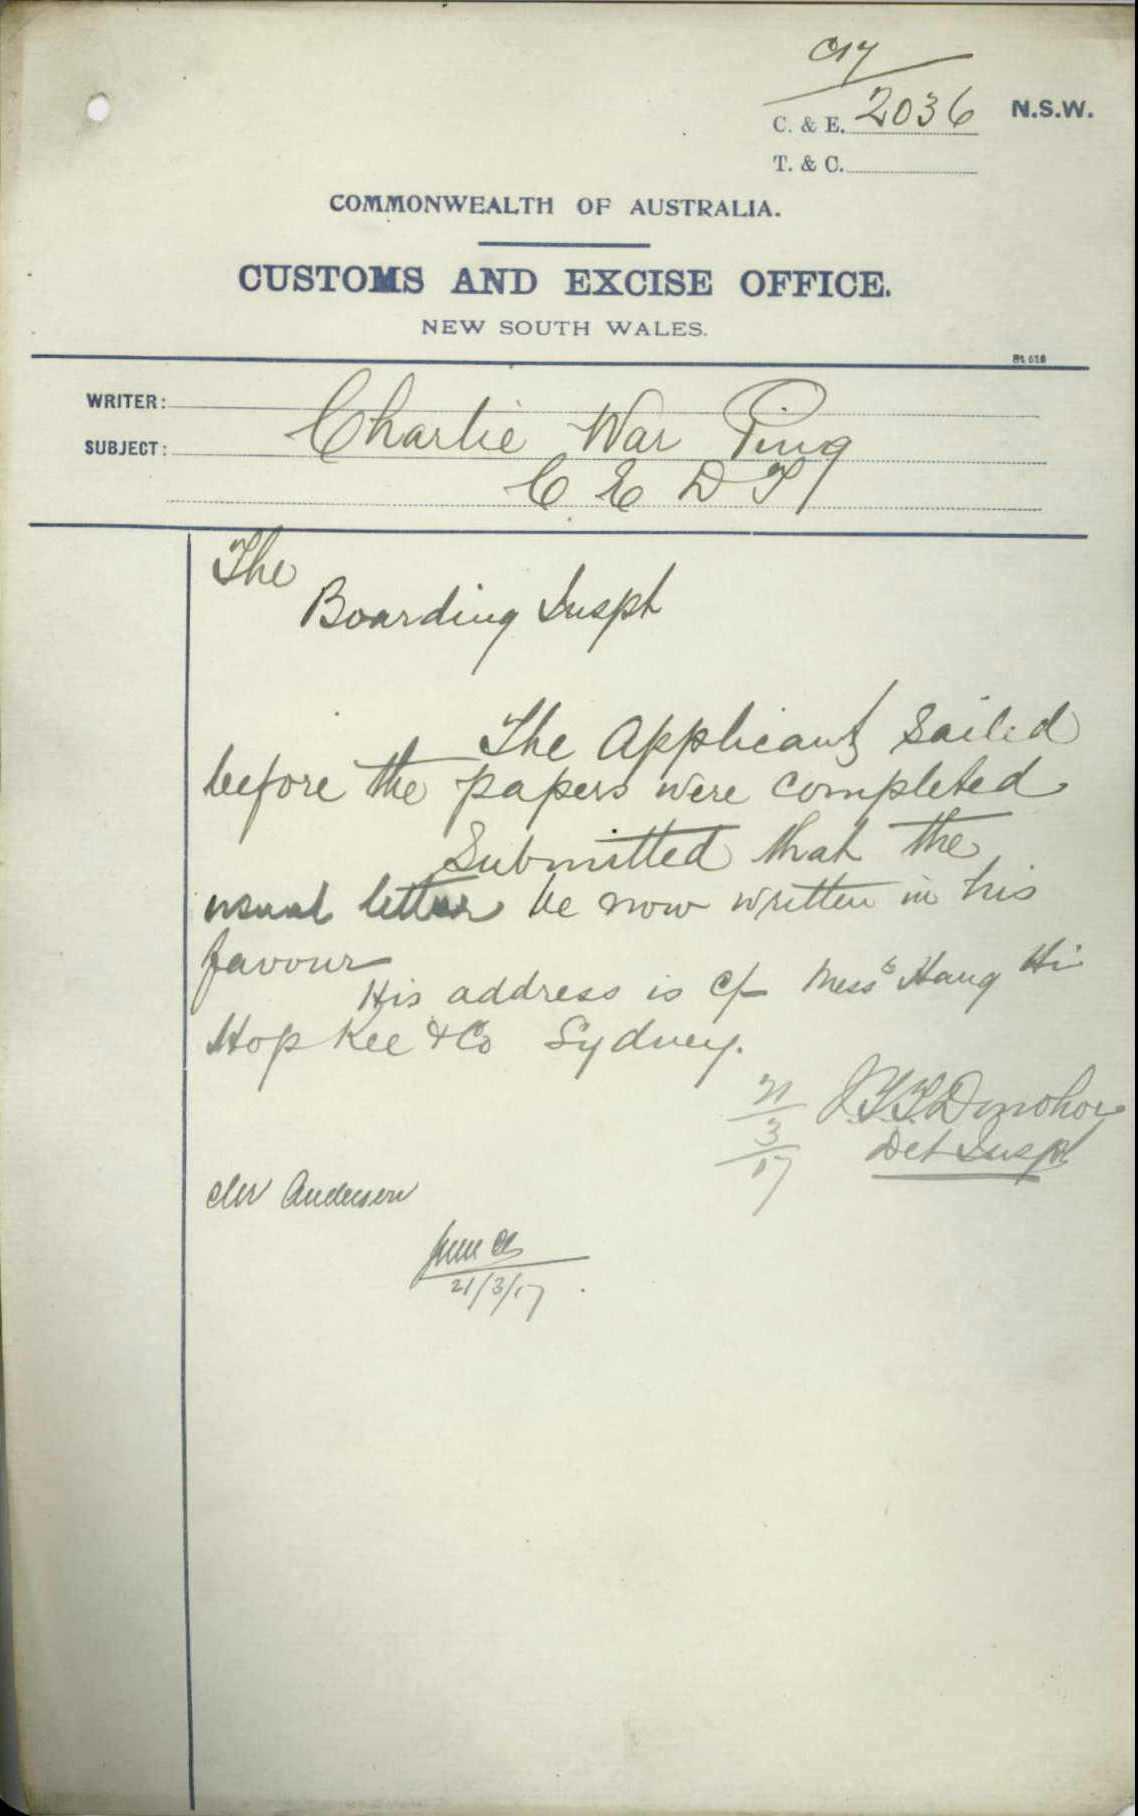 C17
C. & E. 2036 N.S.W.
T. & C.
COMMONWEALTH OF AUSTRALIA.
CUSTOMS AND EXCISE OFFICE.
NEW SOUTH WALES.
WRITER:
SUBJECT: Charlie War Ping
C E D T
The
Boarding Inspt
The Applicant sailed
before the papers were completed
Submitted that the
usual letter be now written in his
favour
His address is c/- Messs Hang Hi
Hop Kee & Co Sydney.
21/3/17 J.T.T. Donohoe
Det Inspr
Mr Anderson
21/3/17